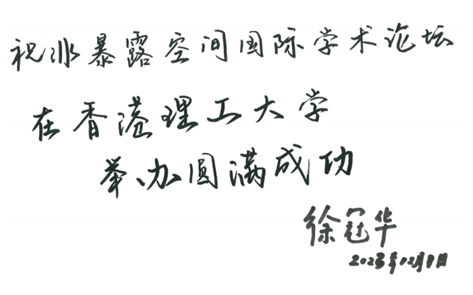 祝冰暴露空间国际学术论坛
在香港理工大学
举办圆满成功
徐冠华
2023年02月9日